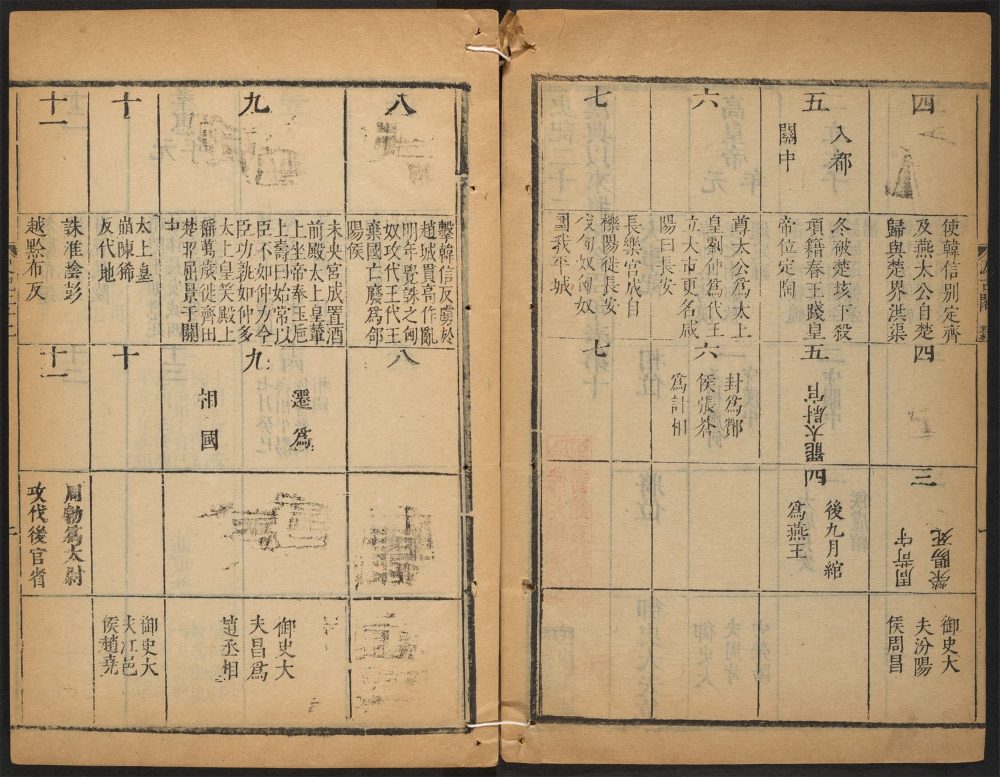 四
使韓信别定齊
及燕太公自楚
歸與楚界洪渠
四
三
周苛守
榮陽死
御史大
夫汾陽
侯周昌
五
入都
關中
冬破楚垓下殺
項籍春王踐皇
帝位定陶
五
罷太尉官
四
後九月綰
爲燕王
六
尊太公爲太上
皇劉仲爲代王
立大市更名咸
陽曰長安
六
封爲酇
侯張蒼
爲計相
七
長樂宫成自
櫟陽徙長安
伐匈奴匈奴
圍我平城
七
八
擊韓信反虜於
趙城貫高作亂
明年覺誅之匈
奴攻代王代王
棄國亡廢爲郃
陽侯
八
九
未央宮成置酒
前殿太上皇輦
上坐帝奉玉巵
上壽曰始常以
臣不如仲力今
臣功孰如仲多
太上皇笑殿上
稱萬歲徙齊田
楚昭屈景于關
中
九
遷爲
相國
御史大
夫昌爲
趙丞相
十
太上皇
崩陳豨
反代地
十
御史大
夫江邑
侯趙堯
十一
誅淮陰彭
越黥布反
十一
周勃爲太尉
攻代後官省